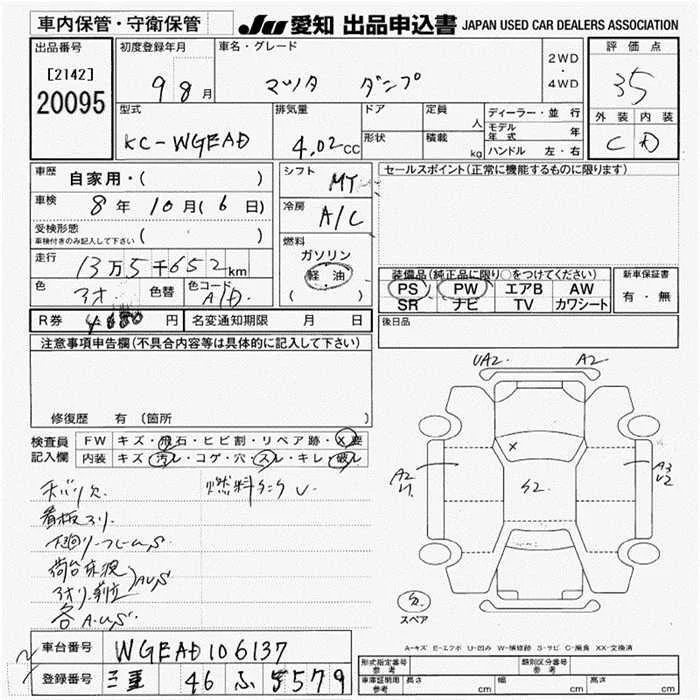 車内保管・守衛保管
JU 愛知 出品申込書 JAPAN USED CAR DEALERS ASSOCIATION
出品番号
[2142]
20095
初度登録年月
9 8月
車名・グレード
マツダ ダンプ
2WD
・
4WD
評価点
35
外装 内装
C D
型式
KC-WGEAD
排気量
4.02cc
ドア
形状
定員 人
積載 kg
ディーラー・並行
モデル年式 年
ハンドル 左・右
車歴
自家用・( )
車検
8年 10月(6日)
受検形態
車検付きのみ記入して下さい ( )
走行
13万5千652km
色
アオ
色替
色コード
R券 円
名変通知期限 月 日
シフト
MT
冷房
A/C
燃料
ガソリン
軽油
( )
セールスポイント(正常に機能するものに限ります)
装備品(純正品に限り○をつけてください)
PS PW エアB AW
SR ナビ TV カワシート
新車保証書
有・無
後日品
注意事項申告欄(不具合内容等は具体的に記入して下さい)
修復歴 有 (箇所 )
検査員
記入欄
FW キズ・飛石・ヒビ割・リペア跡・X要
内装 キズ・汚レ・コゲ・穴・スレ・キレ・破レ
燃料タンクU
看板
下廻リフレームS
荷台床凹
各A.U.S
UA2 A2
A2
X
S2
A3
U2
スペア
A-キズ E-エクボ U-凹み W-補修跡 S-サビ C-腐食 XX-交換済
車台番号
WGEAD106137
登録番号
三重 46 ふ 5579
型式指定番号
参考
類別区分番号
参考
車庫証明用
参考
長さ cm
幅 cm
高さ cm